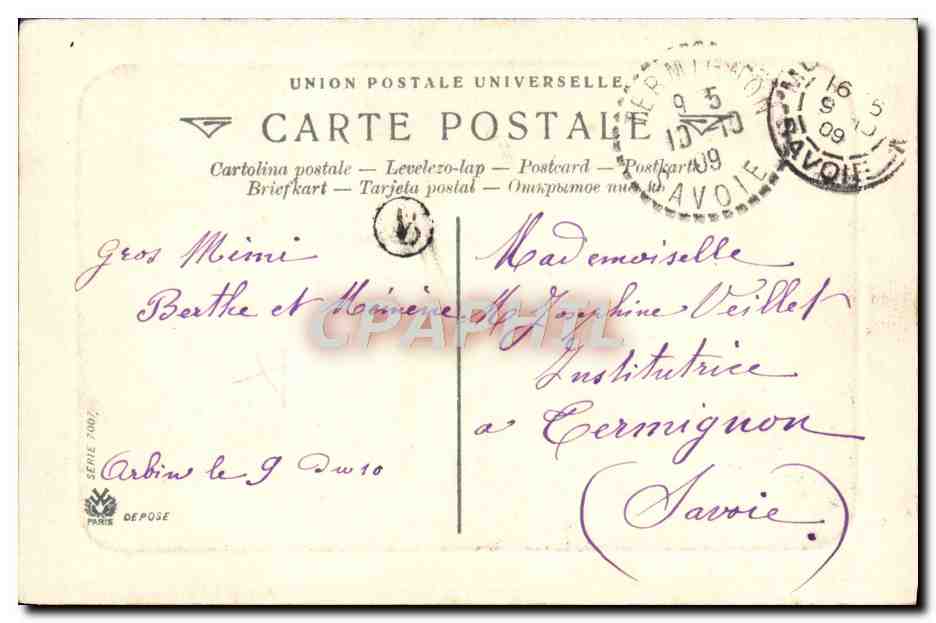 UNION POSTALE UNIVERSELLE
CARTE POSTALE
Cartolina postale — Levelezo-lap — Postcard — Postkarte
Briefkart — Tarjeta postal — Открытое
TERMIGNON
9 5
10 10
09
SAVOIE
16 5
9 10
09
SAVOIE
Gros Mimi
Berthe et Mémène
Arbin le 9 Du 10
Mademoiselle
M Josephine Veillet
Institutrice
a Termignon
(Savoie)
CPAPHIL
SÉRIE 7007
PARIS
DEPOSE